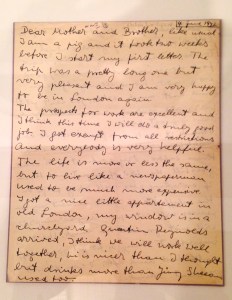 14 June 1941
Dear Mother and Brother, like usual
I am a pig and it took two weeks
before I start my first letter. The
trip was a pretty long one but
very pleasant and I am very happy
to be in London again
The prospects for work are excellent and
I think this time I will do a truly good
job. I got exempt from all restrictions
and everybody is very helpful.
The life is more or less the same,
but to live like a newspaperman
used to be much more expensive.
I got a nice little appartement in
old London, my window is in a
churchyard. Quentin Reynolds
arrived, I think we will work well
together, he is nicer than I thought
but drinks more than Jimmy Sheean
used too.